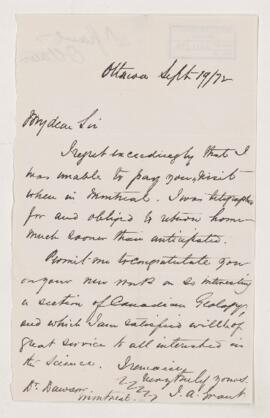 Ottawa Sept 19/72
My dear Sir
I regret exceedingly that I
was unable to pay you a visit
when in Montreal. I was telegraphed
for and obliged to return home
much sooner than anticipated.
Permit me to congratulate you
on your new work on so interesting
a section of Canadian Geology,
and which I am satisfied will be of
great service to all interested in
the Science. I remain
very truly yours
Dr. Dawson
Montreal. J. A. Grant